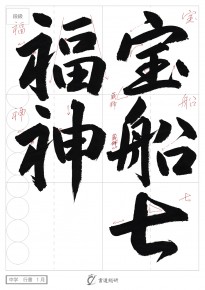 宝船七
福神
宝
船
七
福
神
中学 行書 1月
書道瓦研